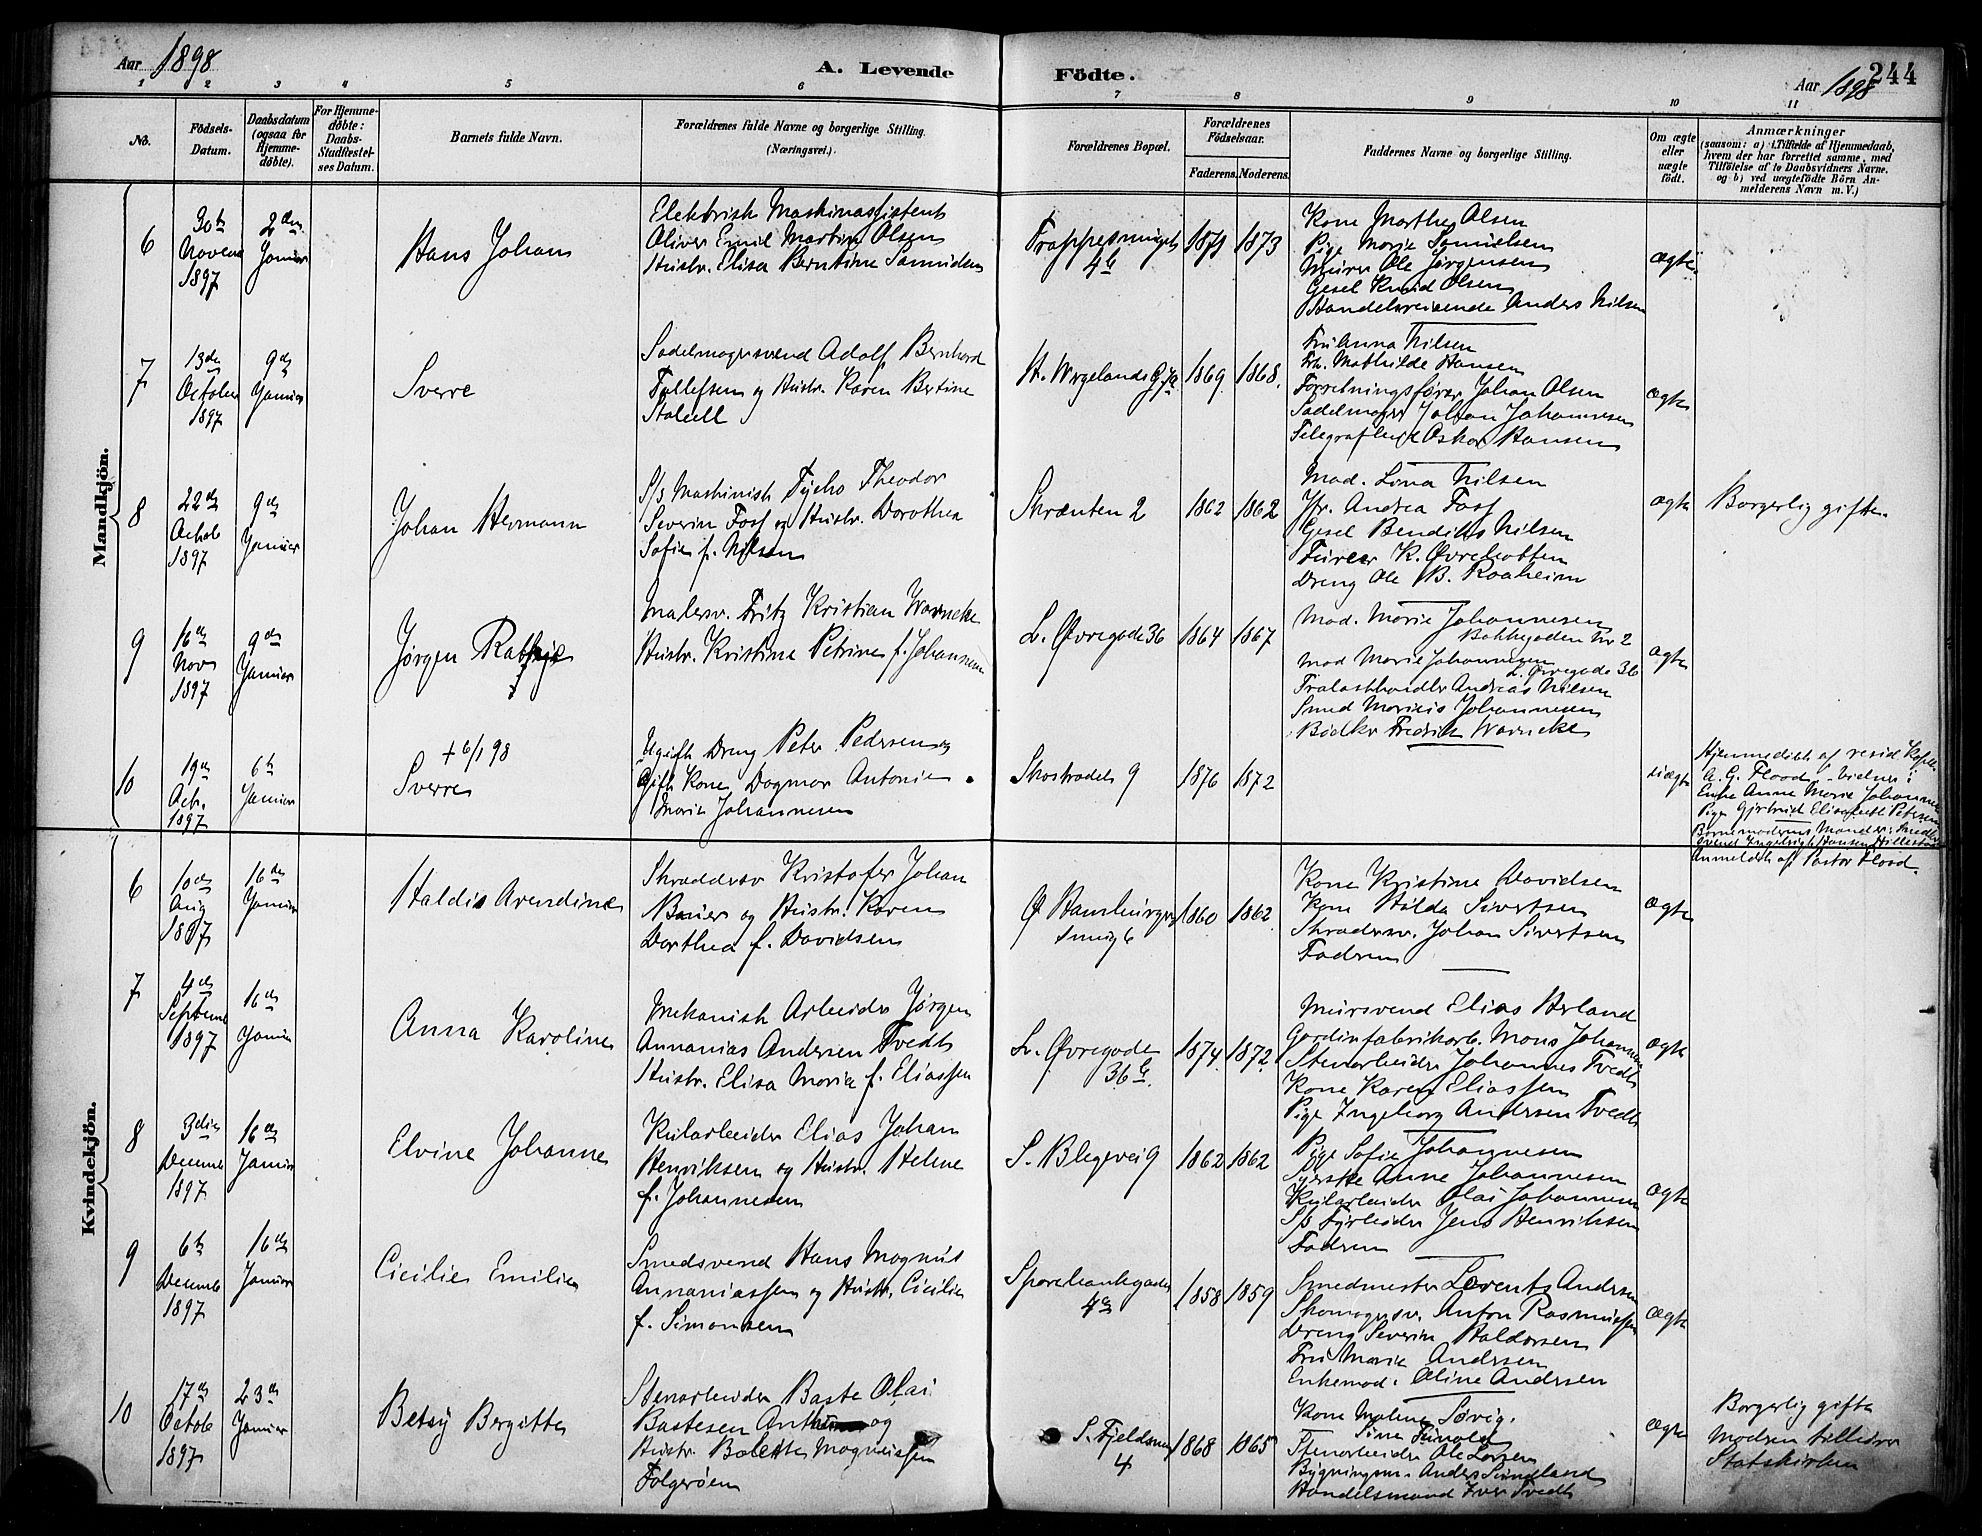 Aar 1898
A. Levende Födte.
Aar 1898
244
1 2 3 4 5 6 7 8 9 10 11
No.
Födsels-
Datum.
Daabsdatum
(ogsaa for
Hjemme-
döbte).
For Hjemme-
döbte:
Daabs-
Stadfæstel-
ses Datum.
Barnets fulde Navn.
Forældrenes fulde Navne og borgerlige Stilling.
(Næringsvei.)
Forældrenes Bopæl.
Forældrenes
Födselsaar.
Faderens. Moderens.
Faddernes Navne og borgerlige Stilling.
Om ægte
eller
uægte
födt.
Anmærkninger
(saasom: a) i Tilfælde af Hjemmedaab,
hvem der har forrettet samme, med
Tilföielse af to Daabsvidners Navne,
og b) ved uægtefödte Börn An-
melderens Navn m. V.)
Mandkjön.
6
30te
Novem
1897
2den
Januar
Hans Johan
Elektrisk Maskinassistent
Oliver Emil Martin Olsen
Hustr. Elisa Berntine Samuelsen
4b
1871
1873
Kone Marthe Olsen
Pige Marie Samuelsen
Murer Ole Jørgensen
Gesel Knud Olsen
Handelsreisende Anders Nilsen
ægte
7
13de
October
1897
9de
Januar
Sverre
Sadelmagersvend Adolf Bernhard
Tollefsen og Hustr. Karen Bertine
H. Wergelands G.
1869
1868
Fru Anna Nilsen
Frk. Mathilde Hansen
Forretningsfører Johan Olsen
Sadelmager Johan Johannesen
Oskar Hansen
ægte
8
22de
Octob
1897
9de
Januar
Johan Hermann
S/s Maskinist Tycho Theodor
Severin Foss og Hustr. Dorothea
Sofie f. Nilsen
Skrænten 2
1862
1862
Mad. Lina Nilsen
Jfr. Andrea Foss
Gesel Bendiks Nilsen
K. Øvrebotten
Dreng Ole B. Raaheim
ægte
Borgerlig gifte.
9
16de
Nov
1897
9de
Januar
Jørgen Rathje
Malersv. Fritz Kristian Warncke
Hustr. Kristine Petrine f. Johannesen
L. Øvregade 36
1864
1867
Mad. Marie Johannesen
Bakkegaden No 2
Mad Marie Johannesen
L. Øvregade 36
Trælasthandler Andreas Nilsen
Smed Marius Johannesen
Bødker Fredrik Warncke
ægte
10
19de
Oct.
1897
6te
Januar
+ 6/1 98
Sverre
Ugift Dreng Peter Pedersen og
Gift Kone Dagmar Antonie
Marie Johannesen
Skostrædet 9
1876
1872
uægte
Hjemmedøbt af resid. Kapel.
A. G. Flood. Vidner:
Enke Anne Marie Johannesen
Pige Gjertrud Elisabeth Petersen
Barnemoderens Mand er: Smedsvend
Hansen
Anmeldt af Pastor Flood.
Kvindekjön.
6
10de
Aug
1897
16de
Januar
Haldis Arendine
Skræddersv Kristofer Johan
Bauer og Hustr. Karen
Dorthea f. Davidsen
Ø Hamburger
smug 6
1860
1862
Kone Kristine Davidsen
Kone Hilda Sivertsen
Skrædersv. Johan Sivertsen
Faderen
ægte
7
4de
Septemb
1897
16de
Januar
Anna Karoline
Mekanisk Arbeider Jørgen
Annanias Andersen Tvedt
Hustr. Elisa Marie f. Eliassen
L. Øvregade
36b.
1874
1872
Mursvend Elias Herland
Gardinfabrikarb. Mons Johannesen
Stenarbeider Johannes Tvedt
Kone Karen Eliassen
Pige Ingeborg Andersen Tvedt
ægte
8
3die
Decemb
1897
16de
Januar
Elvine Johanne
Kularbeider Elias Johan
Henriksen og Hustr. Helene
f. Johannesen
S. Blegevei 9
1862
1862
Pige Sofie Johannesen
Syerske Anne Johannesen
Kularbeider Olai Johannesen
S/s Fyrbøder Jens Henriksen
Faderen
ægte
9
6te
Decemb
1897
16de
Januar
Cicilie Emilie
Smedsvend Hans Magnus
Annaniassen og Hustr. Cicilie
f. Simonsen
Sparebankgaden
4a
1858
1859
Smedmester Lorents Andersen
Skomagersv. Anton Rasmussen
Dreng Severin Haldorsen
Fru Marie Andersen
Enkemad. Oline Andersen
ægte
10
17de
Octob
1897
23de
Januar
Betsy Bergitte
Stenarbeider Baste Olai
Bastesen og
Hustr. Bolette Magnussen
Folgerøen
S. Fjeldsmug
4
1868
1865
Kone Malene Søvig.
Stenarbeider Ole Larsen
Bygningsm. Anders Sundland
Handelsmand Iver Tvedt
ægte
Borgerlig gifte
Moderen tilhører
Statskirken